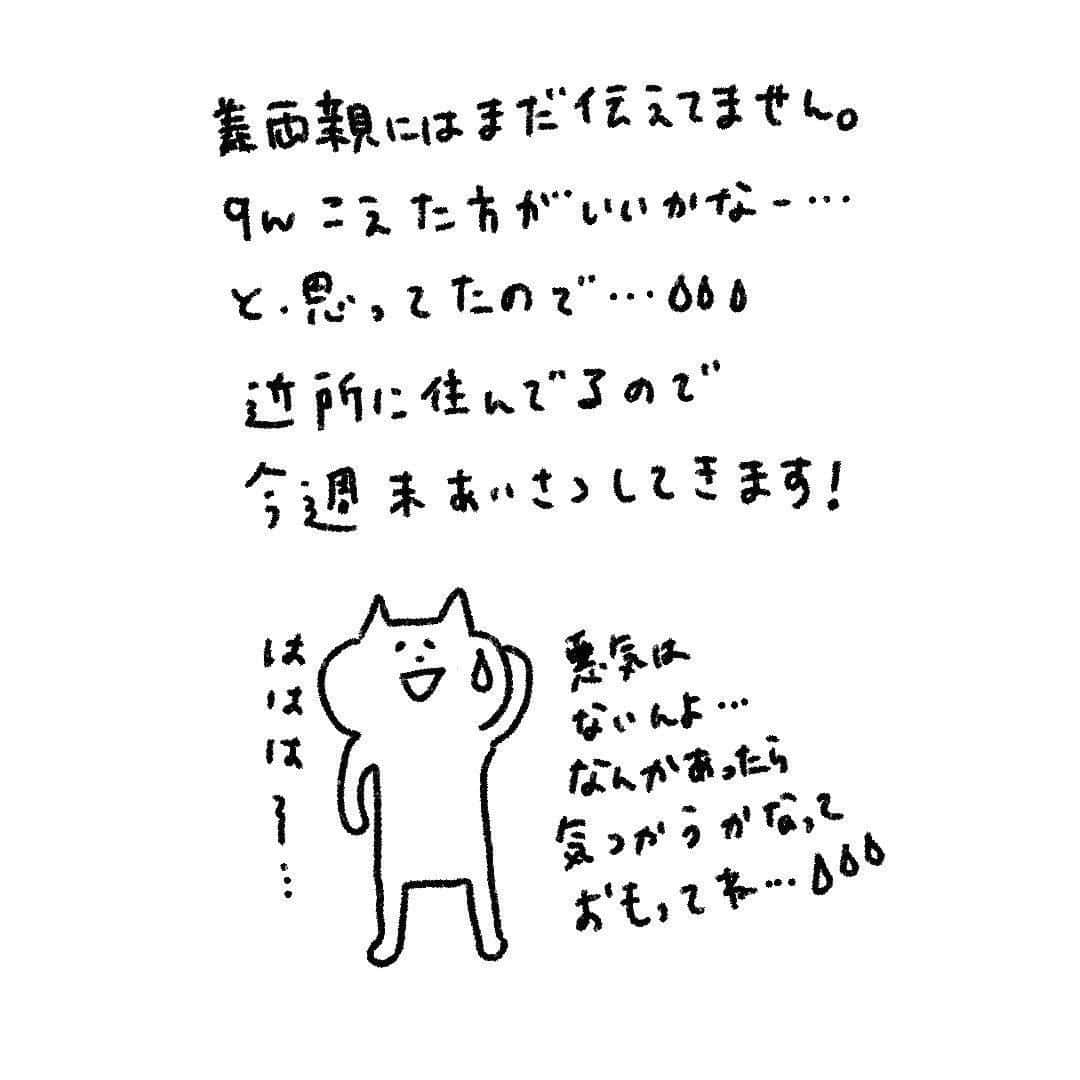 義両親にはまだ伝えてません。
9wこえた方がいいかなー…
と、思ってたので…
近所に住んでるので
今週末あいさつしてきます!
ははは〜…
悪気は
ないんよ…
なんかあったら
気つかうかなって
おもってね…